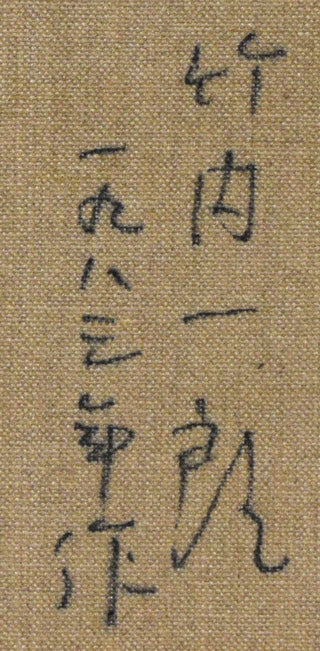 竹内一郎
一九八三年作